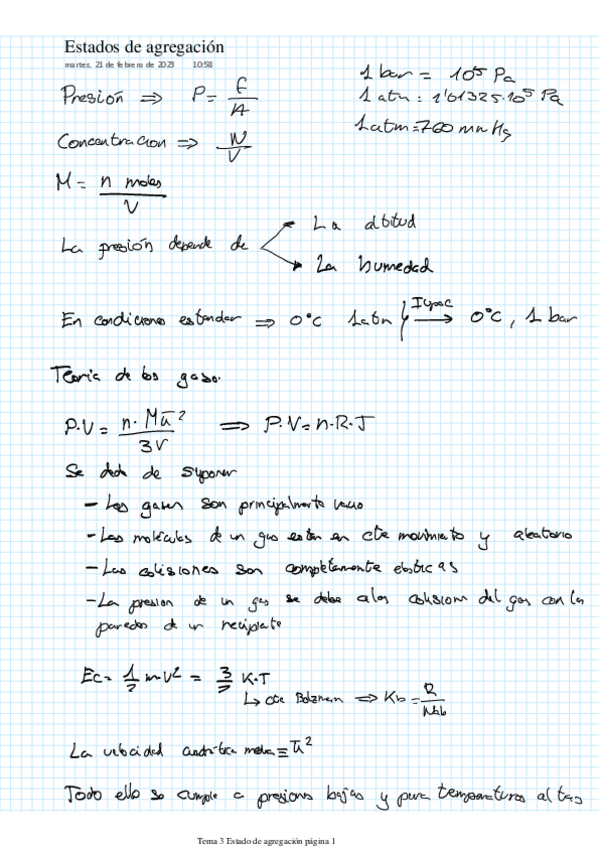 Estados de agregación
martes, 21 de febrero de 2023 10:58
1 bar = 10⁵ Pa
Presión ⇒ P = F/A
1 atm : 1'01325·10⁵ Pa
1 atm = 760 mm Hg
Concentracion ⇒ N/V
M = n moles/V
La presión depende de
La altitud
La humedad
En condiciones estandar ⇒ 0°C 1 atm IUPAC → 0°C, 1 bar
Teoria de los gases.
P.V = n·Mū²/3V ⇒ P.V = n·R·T
Se debe de suponer
- Los gases son principalmente vacio
- Las moléculas de un gas estan en cte movimiento y aleatorio
- Las colisiones son completamente elasticas
- La presion de un gas se debe a los colisiones del gas con las
paredes de un recipiente
Ec = 1/2 m v² = 3/2 K·T
↳ cte Bolzman ⇒ Kb = R/Nab
La velocidad cuadrática media ≡ ū²
Todo ello se cumple a presiones bajas y para temperaturas altas
Tema 3 Estado de agregación página 1